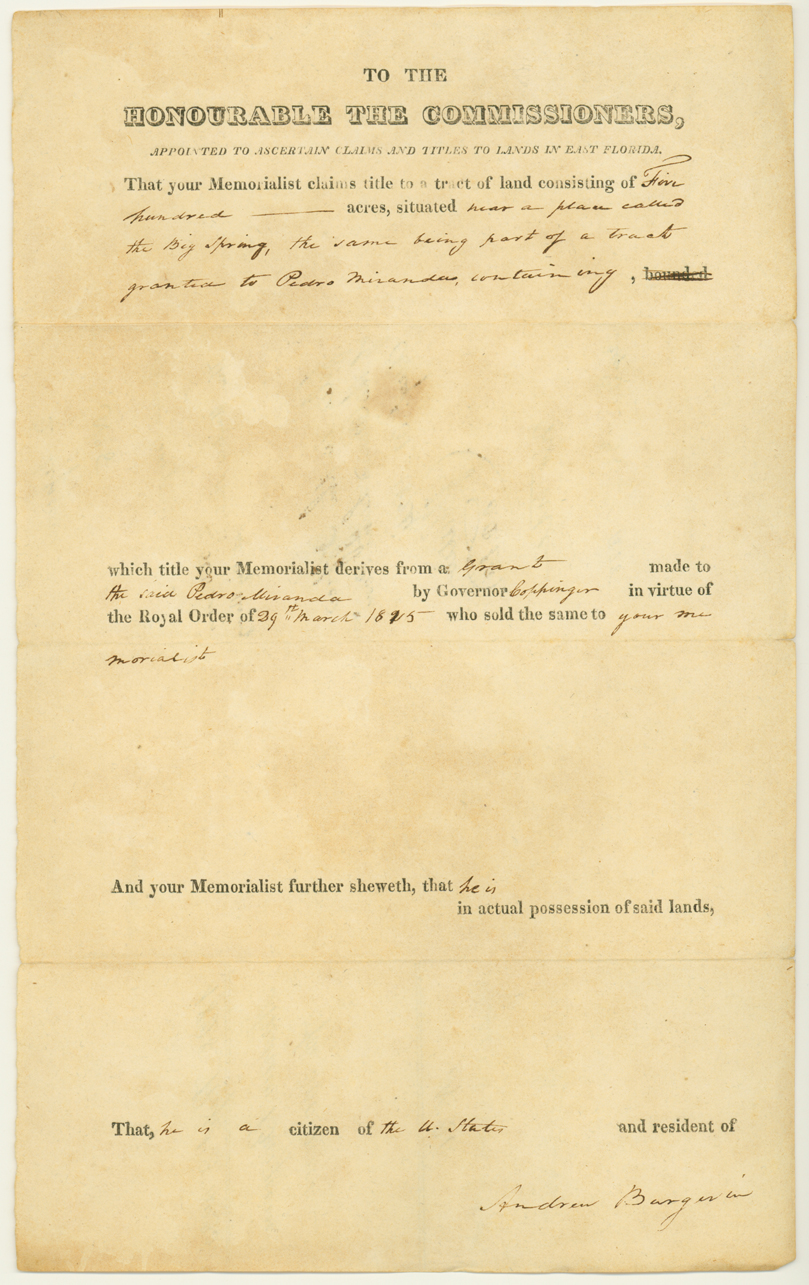 TO THE
HONOURABLE THE COMMISSIONERS,
APPOINTED TO ASCERTAIN CLAIMS AND TITLES TO LANDS IN EAST FLORIDA.
That your Memorialist claims title to a tract of land consisting of Five
hundred ——— acres, situated near a place called
the Big Spring, the same being part of a tract
granted to Pedro Miranda, containing , bounded
which title your Memorialist derives from a Grant made to
the said Pedro Miranda by Governor Coppinger in virtue of
the Royal Order of 29th March 1815 who sold the same to your me
morialist
And your Memorialist further sheweth, that he is
in actual possession of said lands,
That, he is a citizen of the U. States and resident of
Andrew Burgevin